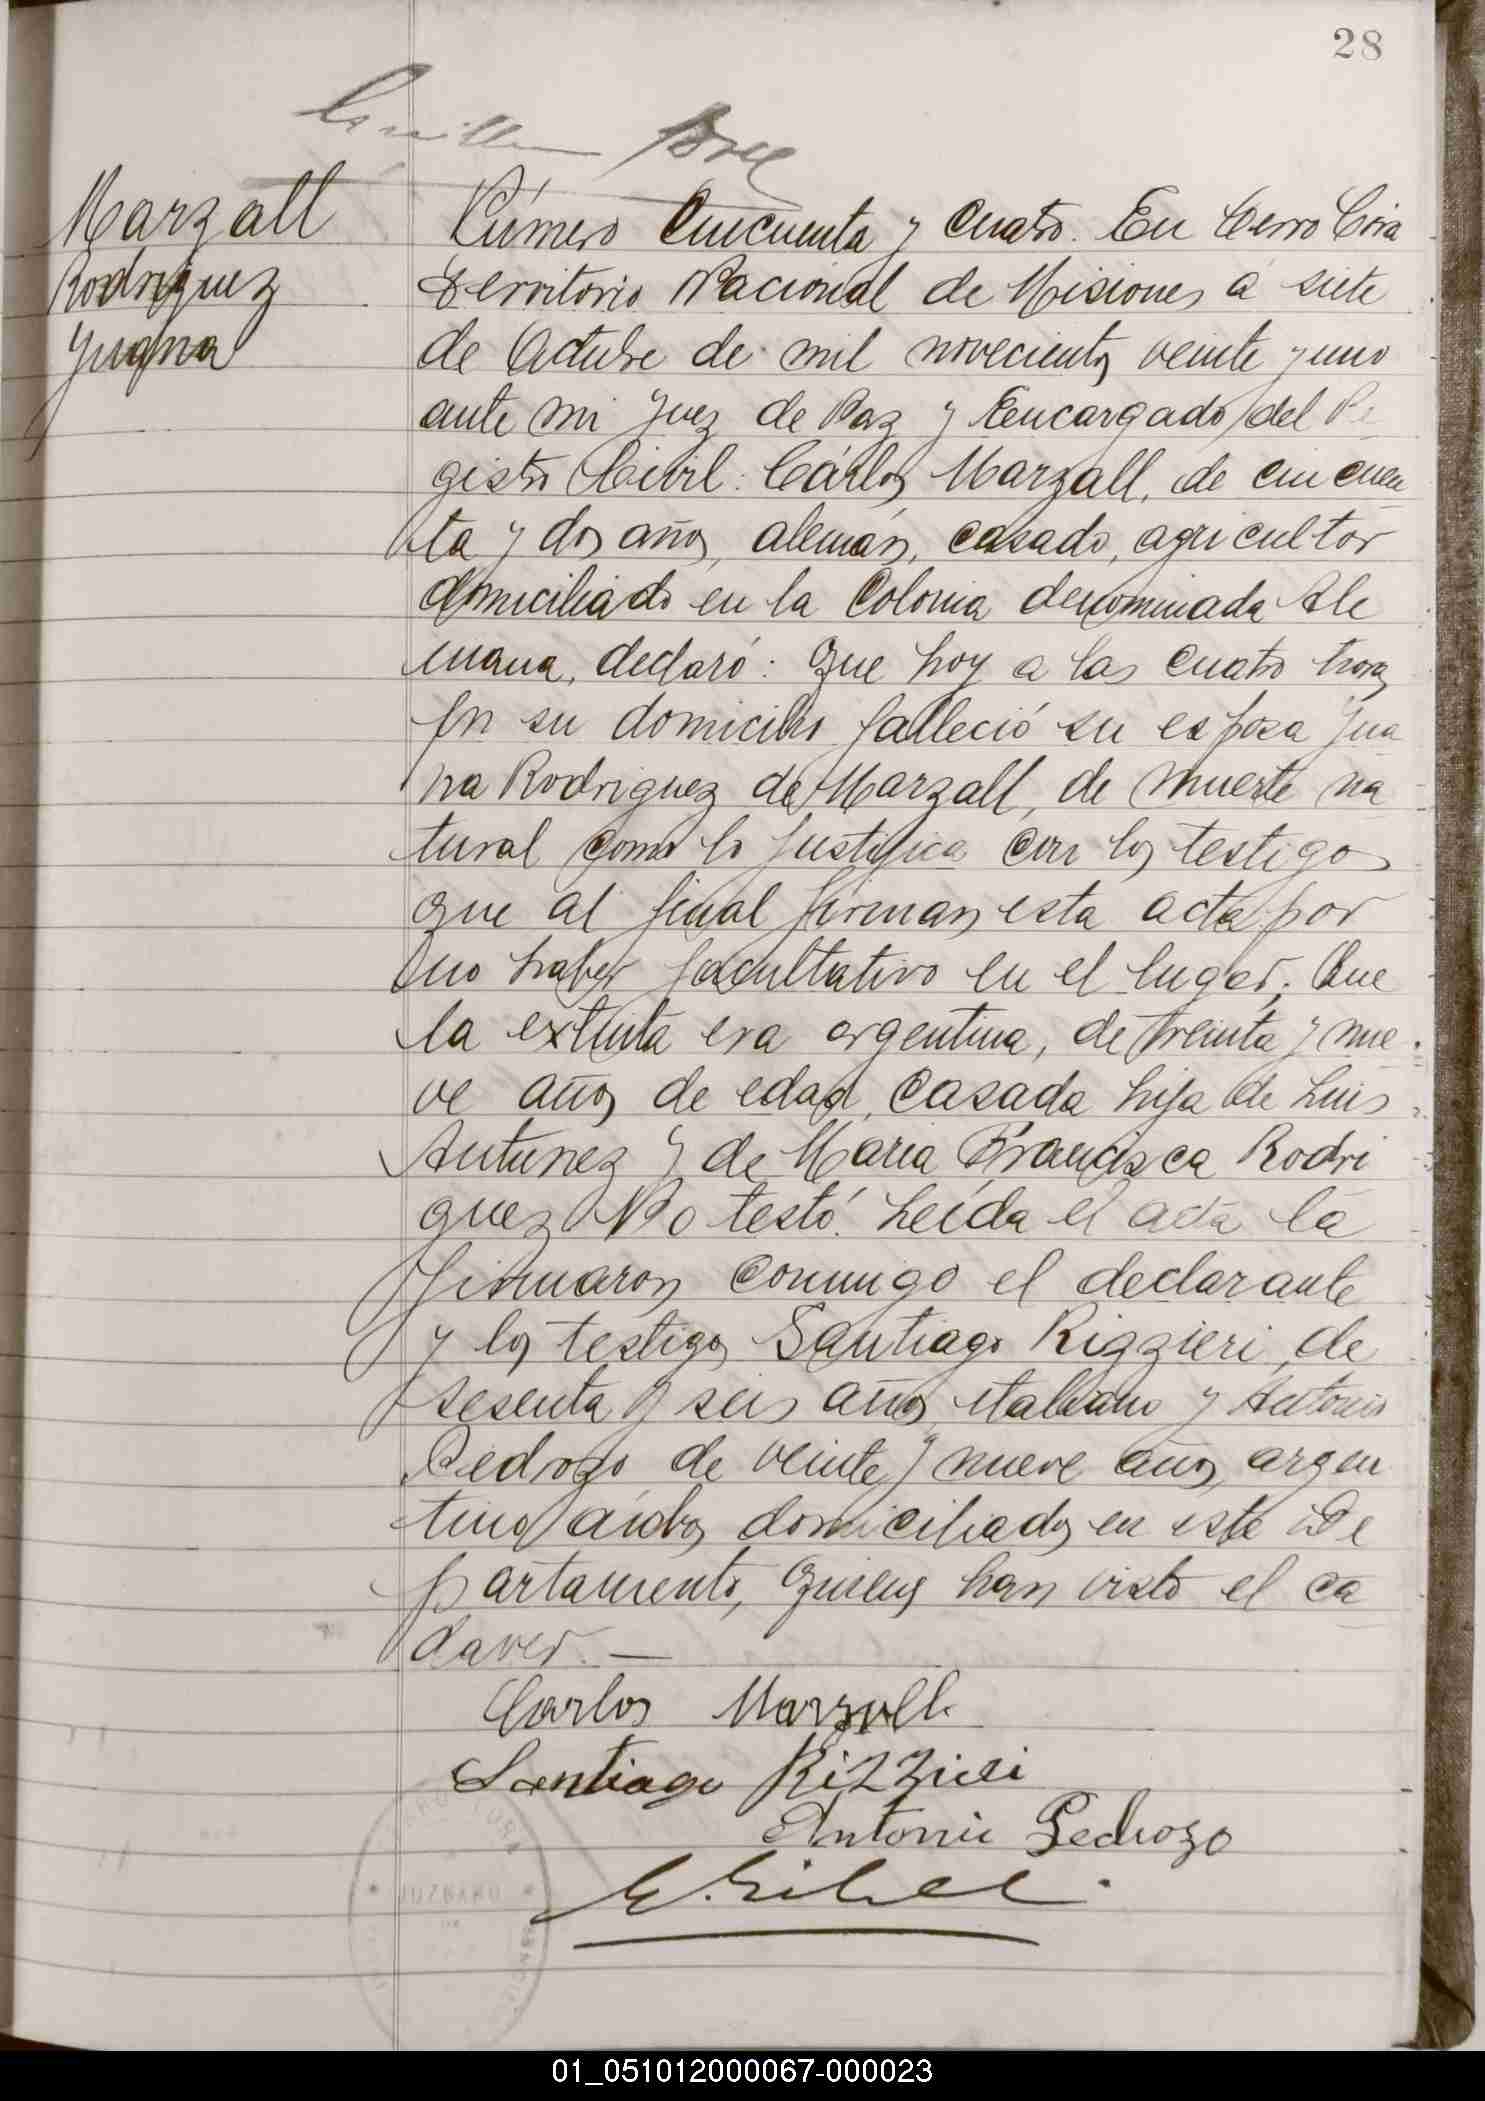 28
Marzall
Rodriguez
Juana
Número Cincuenta y Cuatro. En Cerro Cora
Territorio Nacional de Misiones a siete
de Octubre de mil novecientos veinte y uno
ante mi Juez de Paz y Eencargado del Re
gistro Civil: Cárlos Marzall, de cincuen
ta y dos años, alemán, casado, agricultor
domiciliado en la Colonia denominada Ale
mana, declaró: Que hoy a las cuatro horas
En su domicilio falleció su esposa Jua
na Rodriguez de Marzall, de muerte na
tural como lo justifica con los testigos
que al final firman esta acta por
no haber facultativo en el lugar. Que
la extinta era argentina, de treinta y nue
ve años de edad, casada hija de Luis
Antunez y de Maria Francisca Rodri
guez No testó. Leída el acta la
firmaron conmigo el declarante
y los testigos Santiago Rizzieri, de
sesenta y seis años, italiano y Antonio
Pedrozo de veinte y nueve años, argen
tino ambos domiciliados en este De
partamento, quienes han visto el ca
daver.—
Carlos Marzall
Santiago Rizzieri
Antonio Pedrozo
JUZGADO
01_051012000067-000023